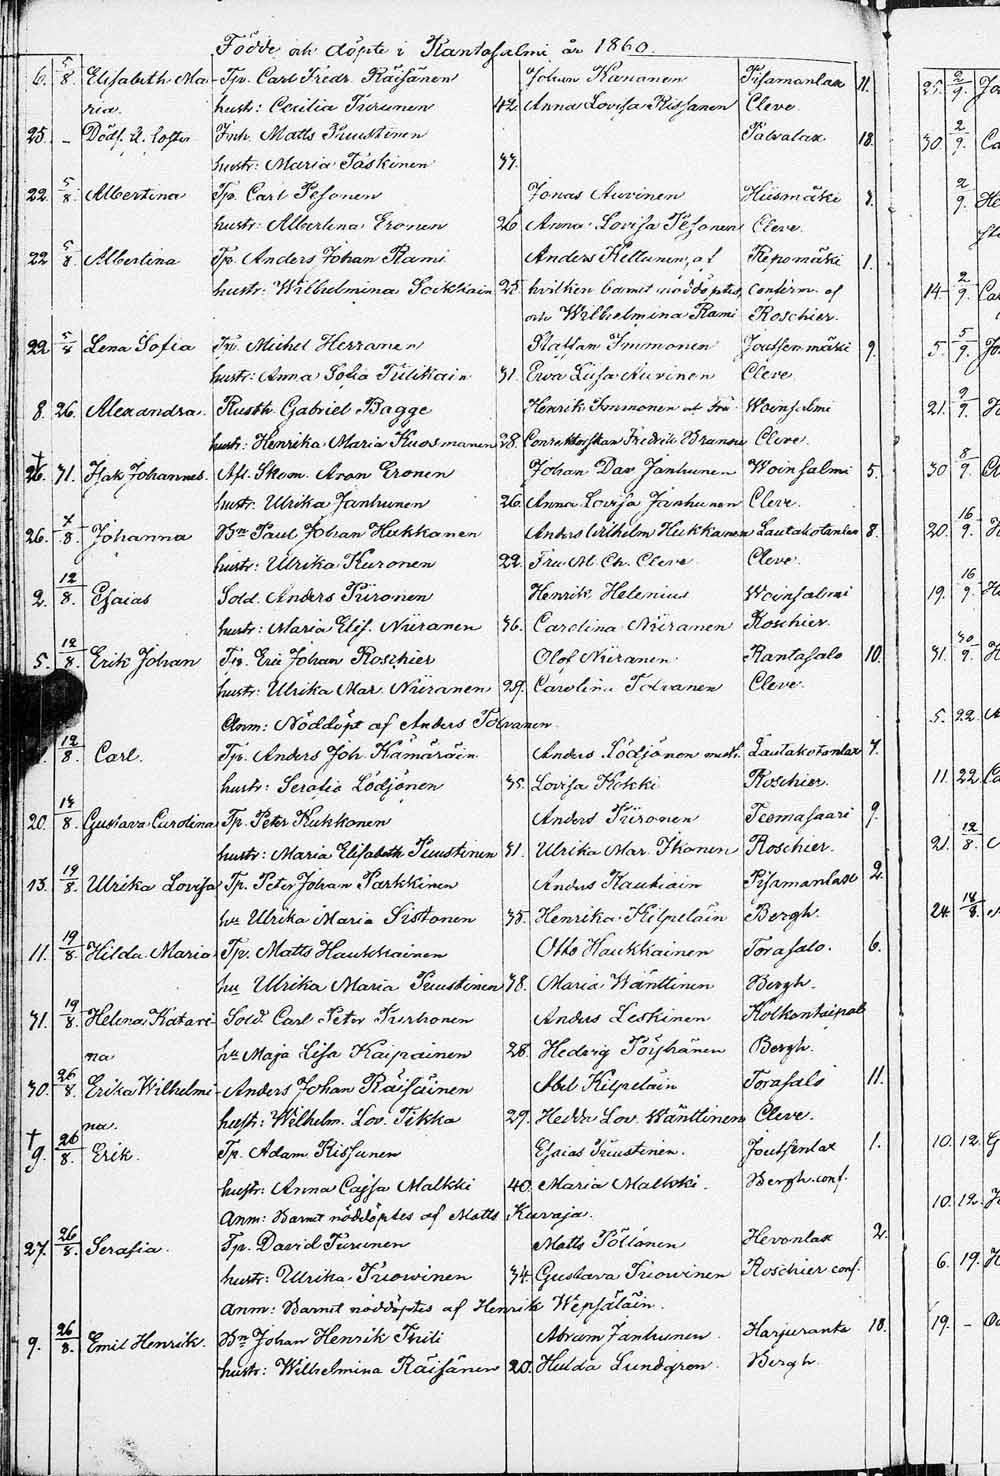 Födde och döpte i Rantasalmi år 1860.
6. 5/8 Elisabeth Ma- Tp. Carl Fredr. Räisänen Johan Kananen Pisamanlax 11.
ria. hustr: Cecilia Turunen 42. Anna Lovisa Kissanen Cleve
25. – Dödf. Inh. Matts Puustinen 18.
hustr: Maria Paskinen 37.
22 5/8 Albertina Tp. Carl Pesonen Jonas Auvinen Hiismäki
hustr: Albertina Eronen 26 Anna Lovisa Pesonen Cleve.
22 5/8 Albertina Tp. Anders Johan Rami Anders Kettunen, af Repomäki 1.
hustr: Wilhelmina Soikkiain 25. hvilken barnet nöddöptes, confirm. af
och Wilhelmina Rami Roschier.
22 5/8 Lena Sofia Tp. Michel Herranen Staffan Immonen Joutsenmäki 9.
hustr: Anna Sofia Tiilikain 31. Ewa Lisa Auvinen Cleve
8. 26. Alexandra. Rusth. Gabriel Bagge Henrik Immonen Woinsalmi
hustr: Henrika Maria Kuosmanen 28. Fredrik Cleve.
† 26. 31. Isak Johannes. Afl. Skom. Aron Eronen Johan Dav. Janhunen Woinsalmi 5.
hustr. Ulrika Janhunen 26. Anna Lovisa Janhunen Cleve.
26. 7/8 Johanna Bn Paul Johan Hukkanen Anders Wilhelm Hukkanen Lautakotanlax 8.
hustr: Ulrika Kuronen 22. Fru M. Ch. Cleve Cleve.
2. 12/8 Esaias Sold. Anders Piironen Henrik Helenius Woinsalmi
hustr: Maria Elis. Niiranen 36. Carolina Niiranen Roschier.
5. 12/8 Erik Johan Tp. Eric Johan Roschier Olof Niiranen Rantasalo 10.
hustr: Ulrika Mar. Niiranen 29. Carolina Tolvanen Cleve.
Anm: Nöddöpt af Anders Tolvanen.
12/8 Carl. Tp. Anders Joh. Kämäräin Anders Lödjönen Lautakotanlax 7.
hustr: Serafia Lödjönen 35. Lovisa Kokki Roschier.
20. 14/8 Gustava Carolina Tp. Peter Kukkonen Anders Piironen Teemasaari 9.
hustr: Maria Elisabeth Puustinen 31. Ulrika Mar. Ikonen Roschier.
13. 19/8 Ulrika Lovisa Tp. Peter Johan Parkkinen Anders Kauhiain Pisamanlax 2.
hu Ulrika Maria Sistonen 35. Henrika Kilpeläin Bergh.
11. 19/8 Hilda Maria Tp. Matts Haukkainen Otto Haukkainen Torasalo. 6.
hu Ulrika Maria Puustinen 38. Maria Wänttinen Bergh.
31. 19/8 Helena Katari- Sold. Carl Peter Kurhonen Anders Leskinen Kolkontaipal
na hu Maja Lisa Kaipainen 28. Hedvig Pöyhönen Bergh.
30. 26/8 Erika Wilhelmi- Anders Johan Räisäinen Abel Kilpeläin Torasalo 11.
na. hustr: Wilhelm. Lov. Tikka 29. Hedda Lov. Wänttinen Cleve.
† 9. 26/8 Erik. Tp. Adam Kissunen Esaias Puustinen. Joutsenlax 1.
hustr: Anna Cajsa Malkki 40. Maria Malkki. Bergh. conf.
Anm: Barnet nöddöptes af Matts Kuvaja.
27. 26/8 Serafia. Tp. David Turunen Matts Pöllänen Hevonlax 2.
hustr: Ulrika Tuowinen 34. Gustava Tuowinen Roschier conf.
Anm: Barnet nöddöptes af Henrik Wepsäläin.
9. 26/8 Emil Henrik. Bn Johan Henrik Thili Abram Janhunen. Harjuranta 18.
hustr: Wilhelmina Räisänen 20. Hulda Lundgren Bergh.
25. 2/9.
30 2/9.
2/9
14 2/9.
5. 5/9.
21. 2/9.
30 8/9.
20. 16/9.
19. 16/9.
31. 30/9.
5. 22.
11. 22.
21. 12/8.
24. 14/8.
10. 12.
10. 12.
6. 19.
19. –